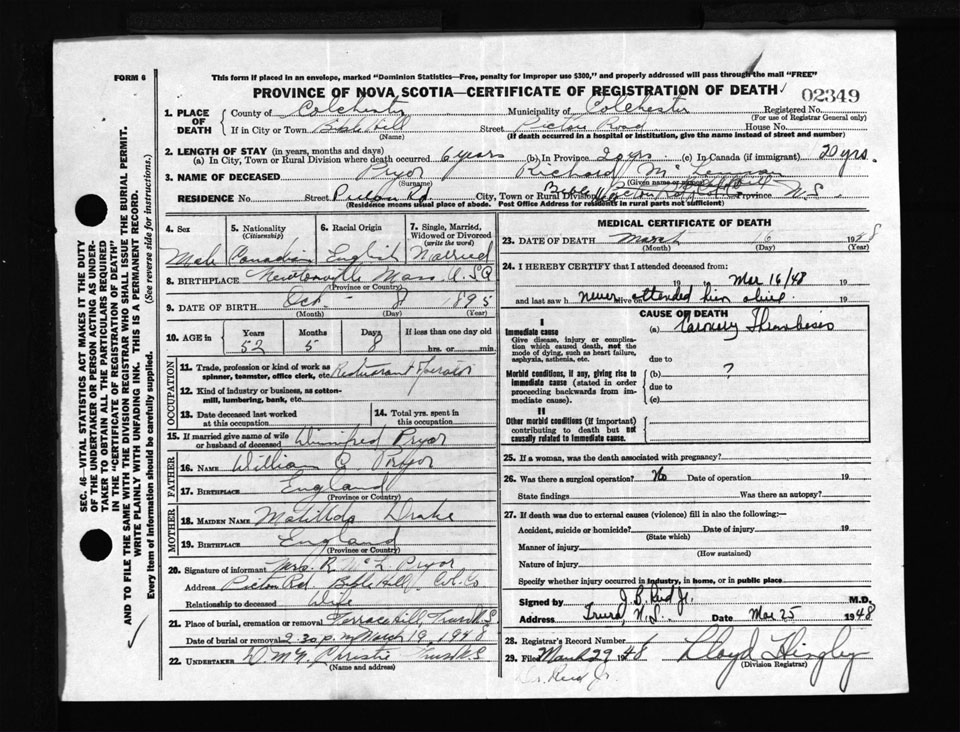 FORM 6
This form if placed in an envelope, marked "Dominion Statistics—Free, penalty for improper use $300," and properly addressed will pass through the mail "FREE"
PROVINCE OF NOVA SCOTIA—CERTIFICATE OF REGISTRATION OF DEATH
02349
1. PLACE OF DEATH
County of Colchester Municipality of Colchester Registered No.
(For use of Registrar General only)
If in City or Town Bible Hill Street Pictou Road House No.
(Name) (If death occurred in a hospital or institution, give the name instead of street and number)
2. LENGTH OF STAY (in years, months and days)
(a) In City, Town or Rural Division where death occurred 6 years (b) In Province 20 yrs. (c) In Canada (if immigrant) 20 yrs.
3. NAME OF DECEASED Pryor Richard McLennan
(Surname) (Given name or names)
RESIDENCE No. Street Pictou Rd. City, Town or Rural Division Bible Hill Province N.S.
(Residence means usual place of abode. Post Office Address for residents in rural parts not sufficient)
4. Sex 5. Nationality (Citizenship) 6. Racial Origin 7. Single, Married, Widowed or Divorced (write the word)
Male Canadian English Married
8. BIRTHPLACE Newtonville Mass. U.S.A
(Province or Country)
9. DATE OF BIRTH Oct. 8 1895
(Month) (Day) (Year)
10. AGE in Years Months Days If less than one day old
52 5 8 hrs. or min.
OCCUPATION
11. Trade, profession or kind of work as spinner, teamster, office clerk, etc. Restaurant Operator
12. Kind of industry or business, as cotton-mill, lumbering, bank, etc.
13. Date deceased last worked at this occupation
14. Total yrs. spent in this occupation
15. If married give name of wife or husband of deceased Winnifred Pryor
FATHER
16. NAME William C Pryor
17. BIRTHPLACE England
(Province or Country)
MOTHER
18. MAIDEN NAME Matilda Drake
19. BIRTHPLACE England
(Province or Country)
20. Signature of informant Mrs. R. McL Pryor
Address Pictou Rd Bible Hill Col. Co.
Relationship to deceased Wife
21. Place of burial, cremation or removal Terrace Hill, Truro N.S
Date of burial or removal 2.30 p.m March 19, 1948
22. UNDERTAKER Christie Truro N.S
(Name and address)
MEDICAL CERTIFICATE OF DEATH
23. DATE OF DEATH March 16 1948
(Month) (Day) (Year)
24. I HEREBY CERTIFY that I attended deceased from:
19 Mar 16/48 19
and last saw h never alive on attended him alive. 19
CAUSE OF DEATH
I
Immediate cause
Give disease, injury or complication which caused death, not the mode of dying, such as heart failure, asphyxia, asthenia, etc.
(a) Coronary Thrombosis
due to
Morbid conditions, if any, giving rise to immediate cause (stated in order proceeding backwards from immediate cause).
(b) ?
due to
(c)
II
Other morbid conditions (if important) contributing to death but not causally related to immediate cause.
25. If a woman, was the death associated with pregnancy?
26. Was there a surgical operation? No Date of operation 19
State findings Was there an autopsy?
27. If death was due to external causes (violence) fill in also the following:—
Accident, suicide or homicide? Date of injury 19
(State which)
Manner of injury
(How sustained)
Nature of injury
Specify whether injury occurred in industry, in home, or in public place
Signed by J. B. Reid Jr. M.D.
Address Truro, N.S. Date Mar 25 1948
28. Registrar's Record Number
29. Filed March 29 1948 Lloyd Hingley
(Division Registrar)
Dr. Reid Jr.
SEC. 46—VITAL STATISTICS ACT MAKES IT THE DUTY
OF THE UNDERTAKER OR PERSON ACTING AS UNDER-
TAKER TO OBTAIN ALL THE PARTICULARS REQUIRED
IN THE "CERTIFICATE OF REGISTRATION OF DEATH"
AND TO FILE THE SAME WITH THE DIVISION REGISTRAR WHO SHALL ISSUE THE BURIAL PERMIT.
WRITE PLAINLY WITH UNFADING INK. THIS IS A PERMANENT RECORD.
Every item of information should be carefully supplied. (See reverse side for instructions.)